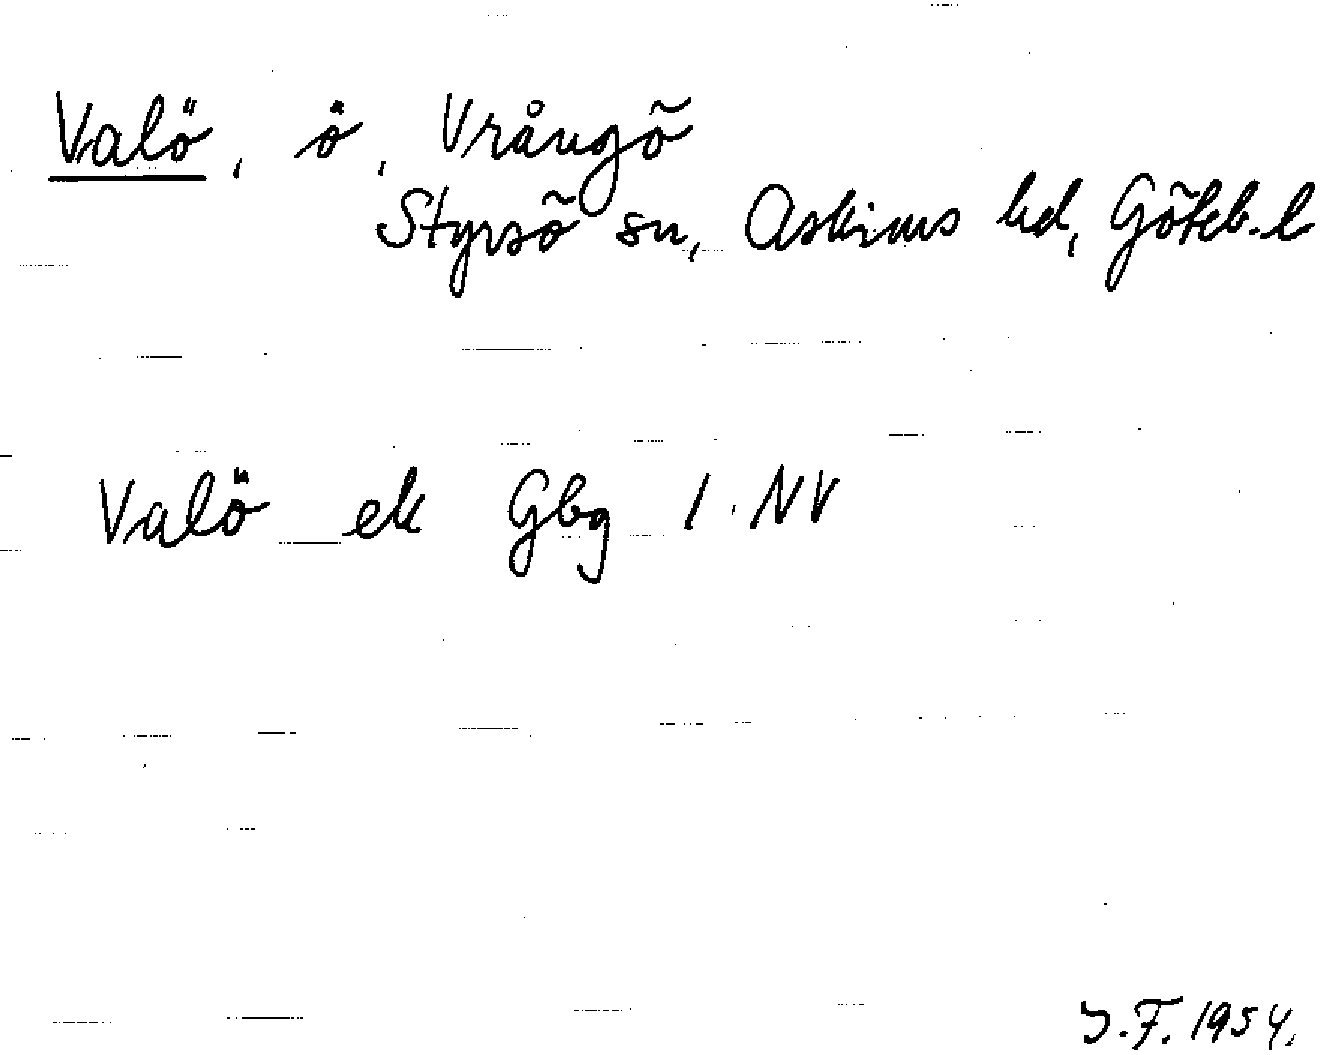 Valö, ö, Vrångö
Styrsö sn, Askims hd, Göteb. l
Valö ek Gbg 1. NV
J.F. 1954.